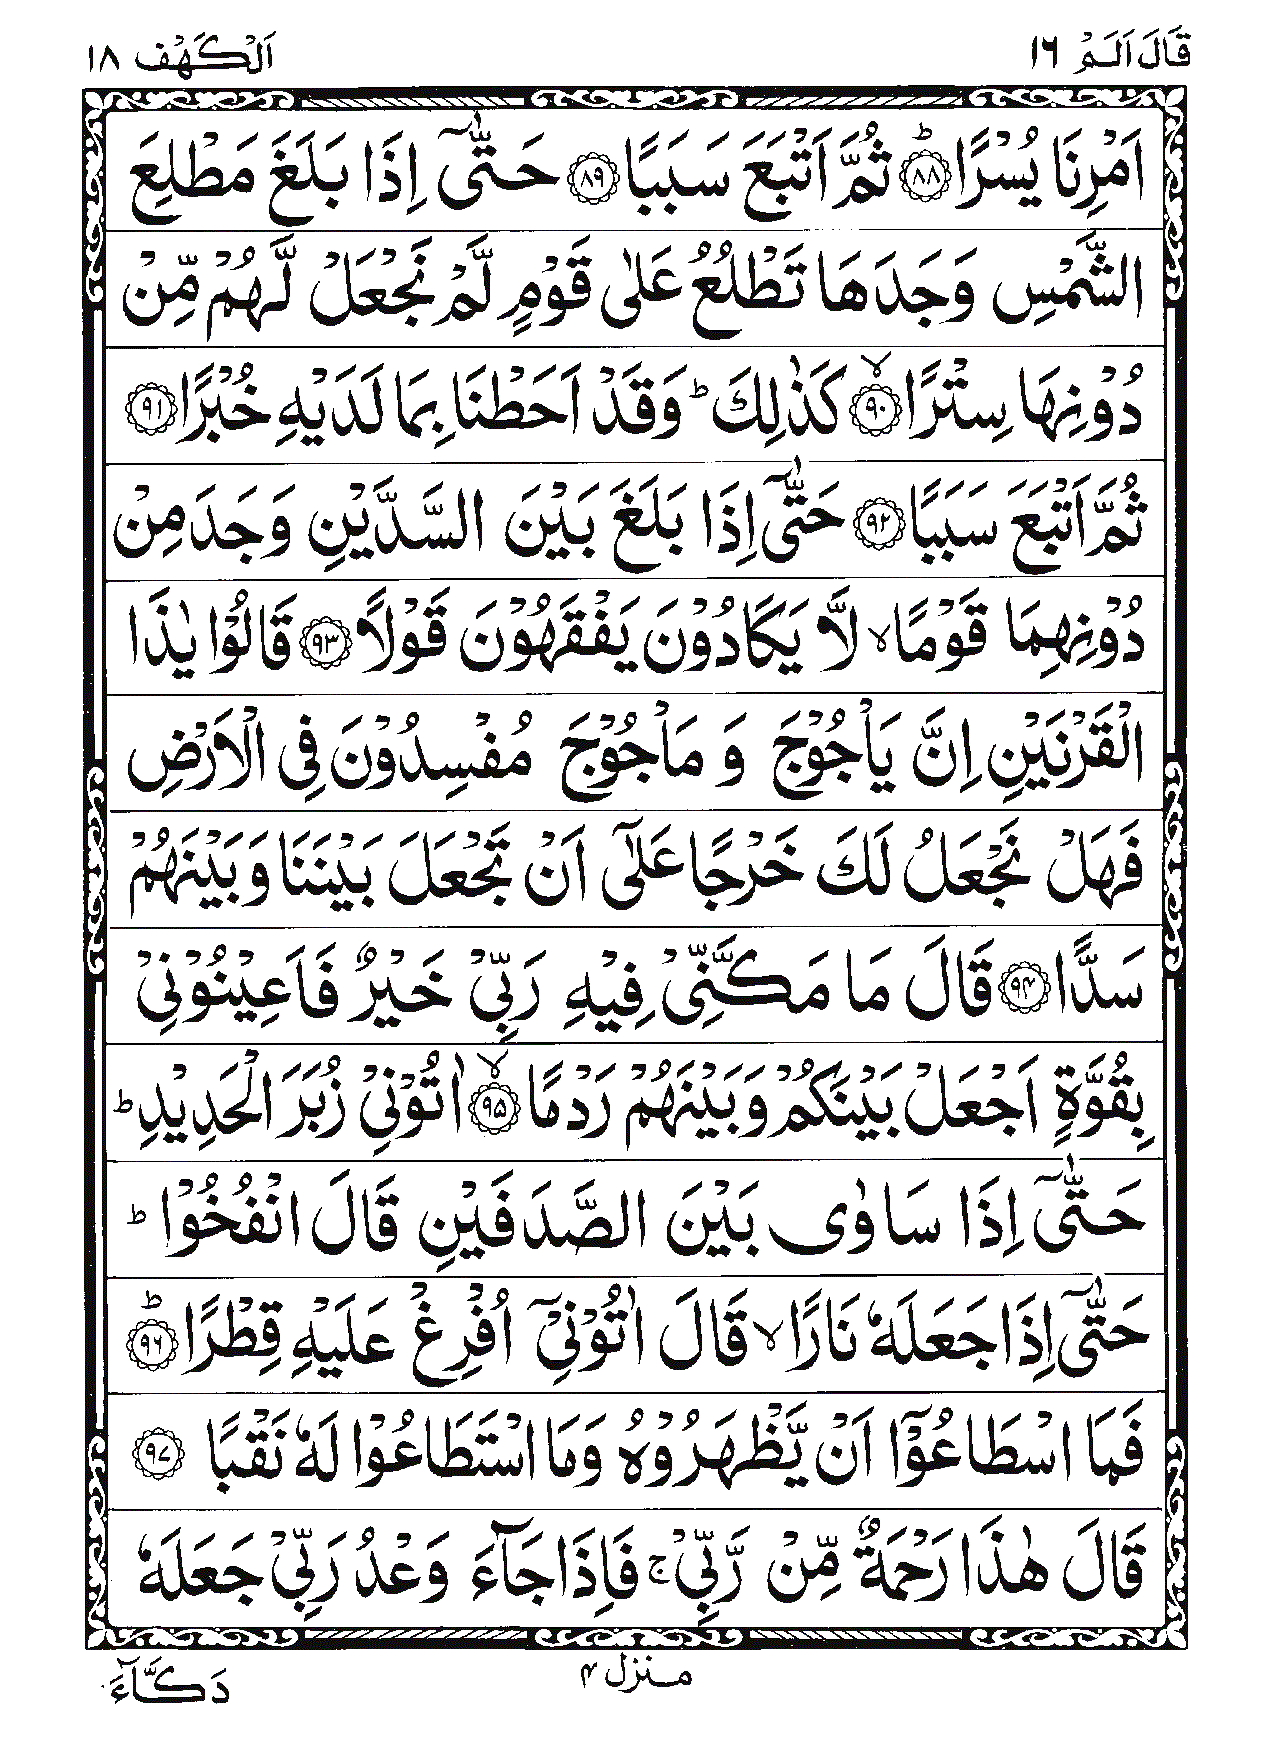 قَالَ اَلَمْ ١٦
اَلْكَهْف ١٨
اَمْرِنَا يُسْرًا ؕ ٨٨ ثُمَّ اَتْبَعَ سَبَبًا ٨٩ حَتّٰۤى اِذَا بَلَغَ مَطْلِعَ
الشَّمْسِ وَجَدَهَا تَطْلُعُ عَلٰى قَوْمٍ لَّمْ نَجْعَلْ لَّهُمْ مِّنْ
دُوْنِهَا سِتْرًا ۙ ٩٠ كَذٰلِكَ ؕ وَقَدْ اَحَطْنَا بِمَا لَدَيْهِ خُبْرًا ٩١
ثُمَّ اَتْبَعَ سَبَبًا ٩٢ حَتّٰۤى اِذَا بَلَغَ بَيْنَ السَّدَّيْنِ وَجَدَ مِنْ
دُوْنِهِمَا قَوْمًا ۙ لَّا يَكَادُوْنَ يَفْقَهُوْنَ قَوْلًا ٩٣ قَالُوْا يٰذَا
الْقَرْنَيْنِ اِنَّ يَاْجُوْجَ وَ مَاْجُوْجَ مُفْسِدُوْنَ فِى الْاَرْضِ
فَهَلْ نَجْعَلُ لَكَ خَرْجًا عَلٰۤى اَنْ تَجْعَلَ بَيْنَنَا وَبَيْنَهُمْ
سَدًّا ٩٤ قَالَ مَا مَكَّنِّىْ فِيْهِ رَبِّىْ خَيْرٌ فَاَعِيْنُوْنِىْ
بِقُوَّةٍ اَجْعَلْ بَيْنَكُمْ وَبَيْنَهُمْ رَدْمًا ۙ ٩٥ اٰتُوْنِىْ زُبَرَ الْحَدِيْدِ ؕ
حَتّٰۤى اِذَا سَاوٰى بَيْنَ الصَّدَفَيْنِ قَالَ انْفُخُوْا ؕ
حَتّٰۤى اِذَا جَعَلَهٗ نَارًا ۙ قَالَ اٰتُوْنِىْۤ اُفْرِغْ عَلَيْهِ قِطْرًا ؕ ٩٦
فَمَا اسْطَاعُوْۤا اَنْ يَّظْهَرُوْهُ وَمَا اسْتَطَاعُوْا لَهٗ نَقْبًا ٩٧
قَالَ هٰذَا رَحْمَةٌ مِّنْ رَّبِّىْ ۚ فَاِذَا جَآءَ وَعْدُ رَبِّىْ جَعَلَهٗ
منزل ٤
دَكَّآءَ